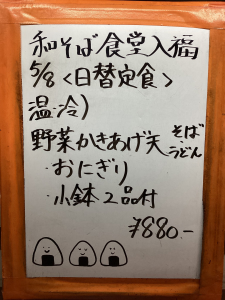 和そば食堂入福
5/8<日替定食>
温・冷)
野菜かきあげ天 そば
うどん
・おにぎり
・小鉢2品付
¥880.-